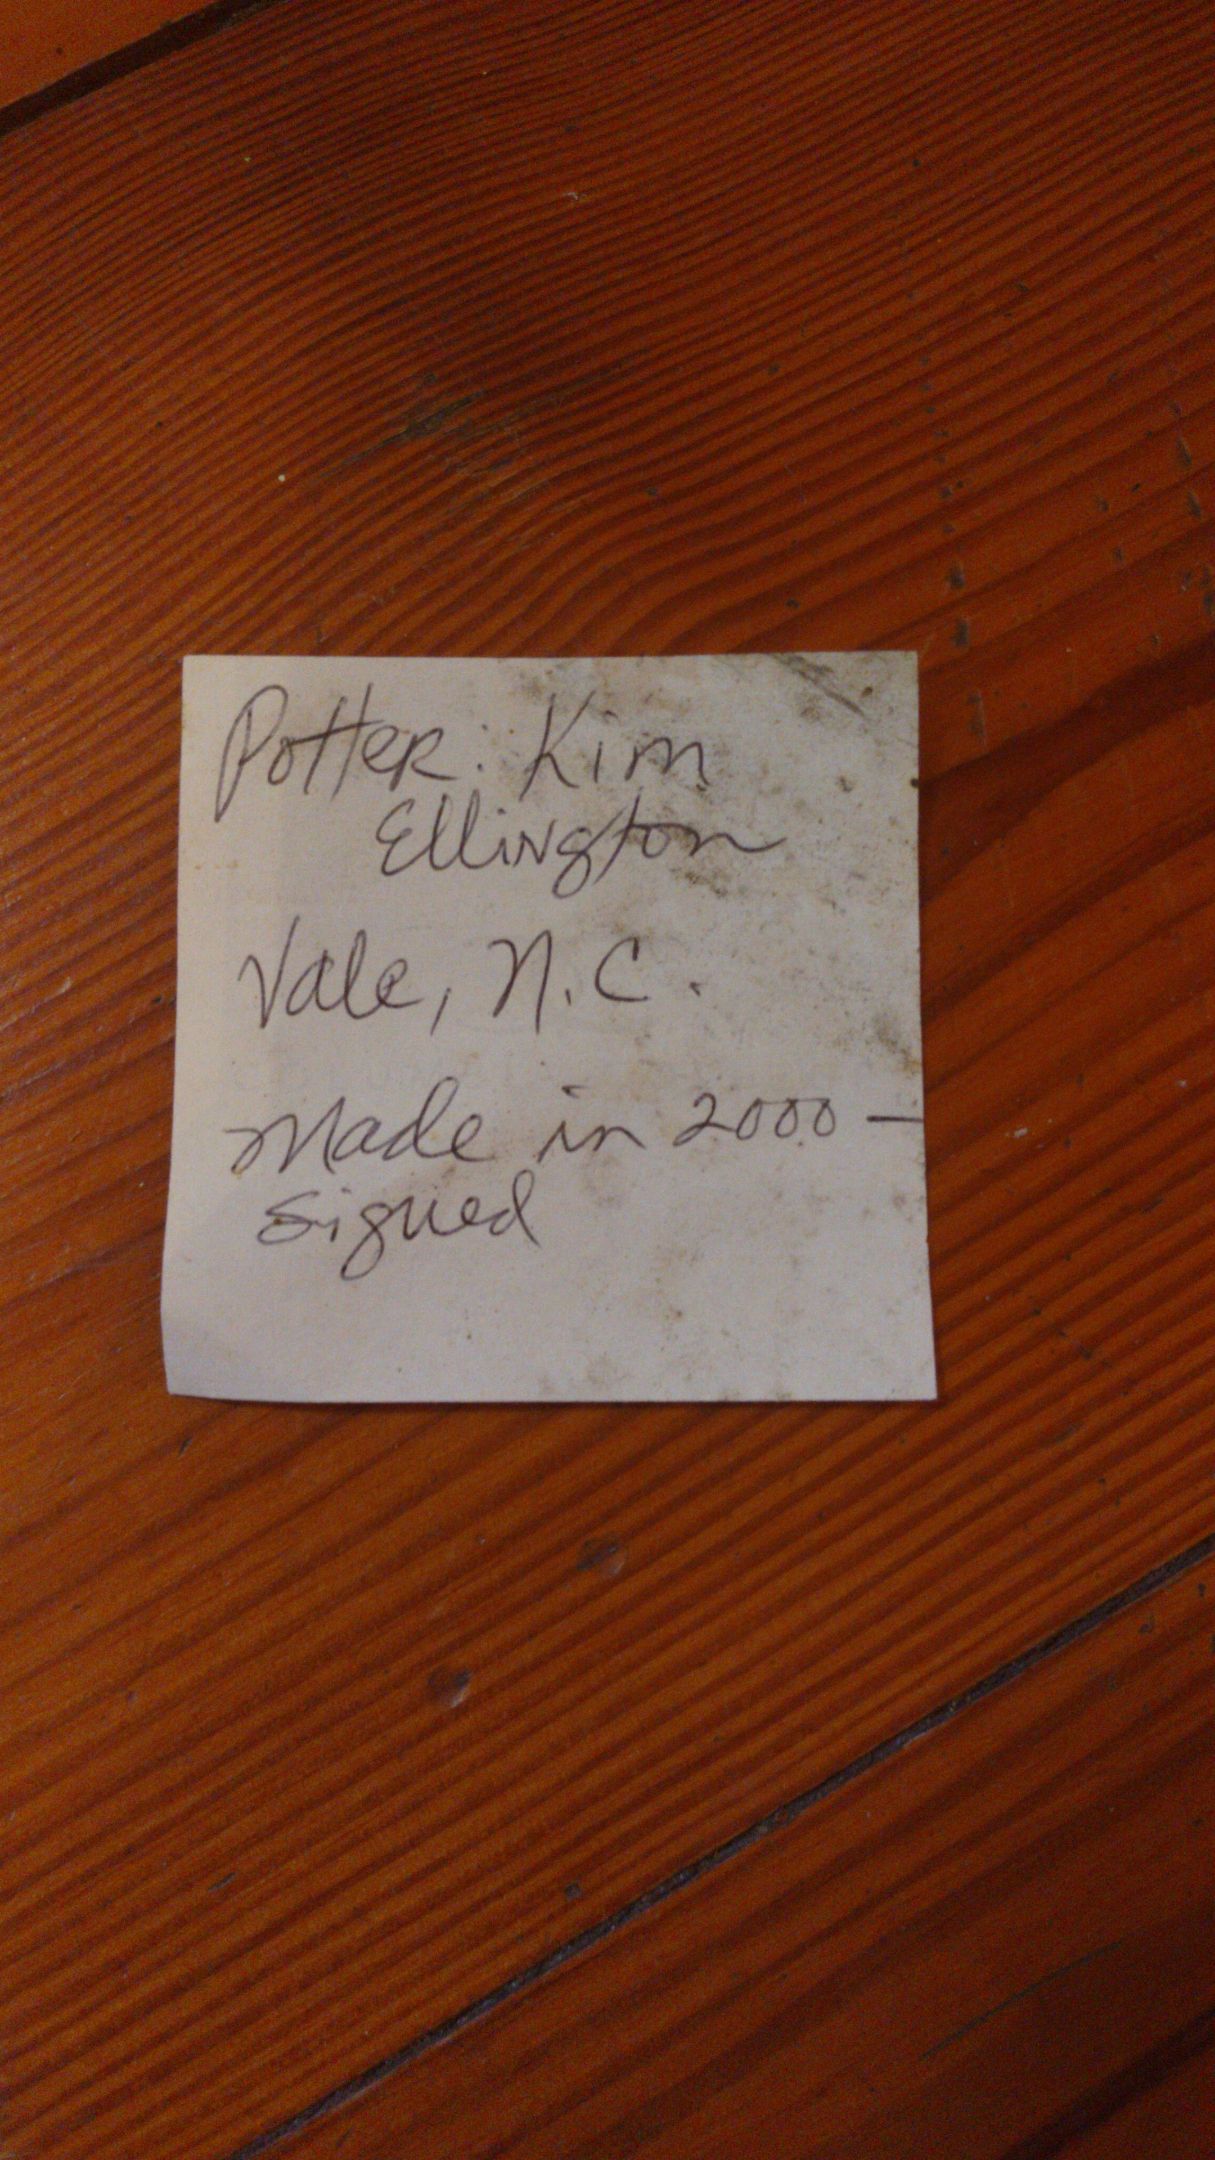 Potter: Kim
Ellington
Vale, N.C.
Made in 2000 —
signed